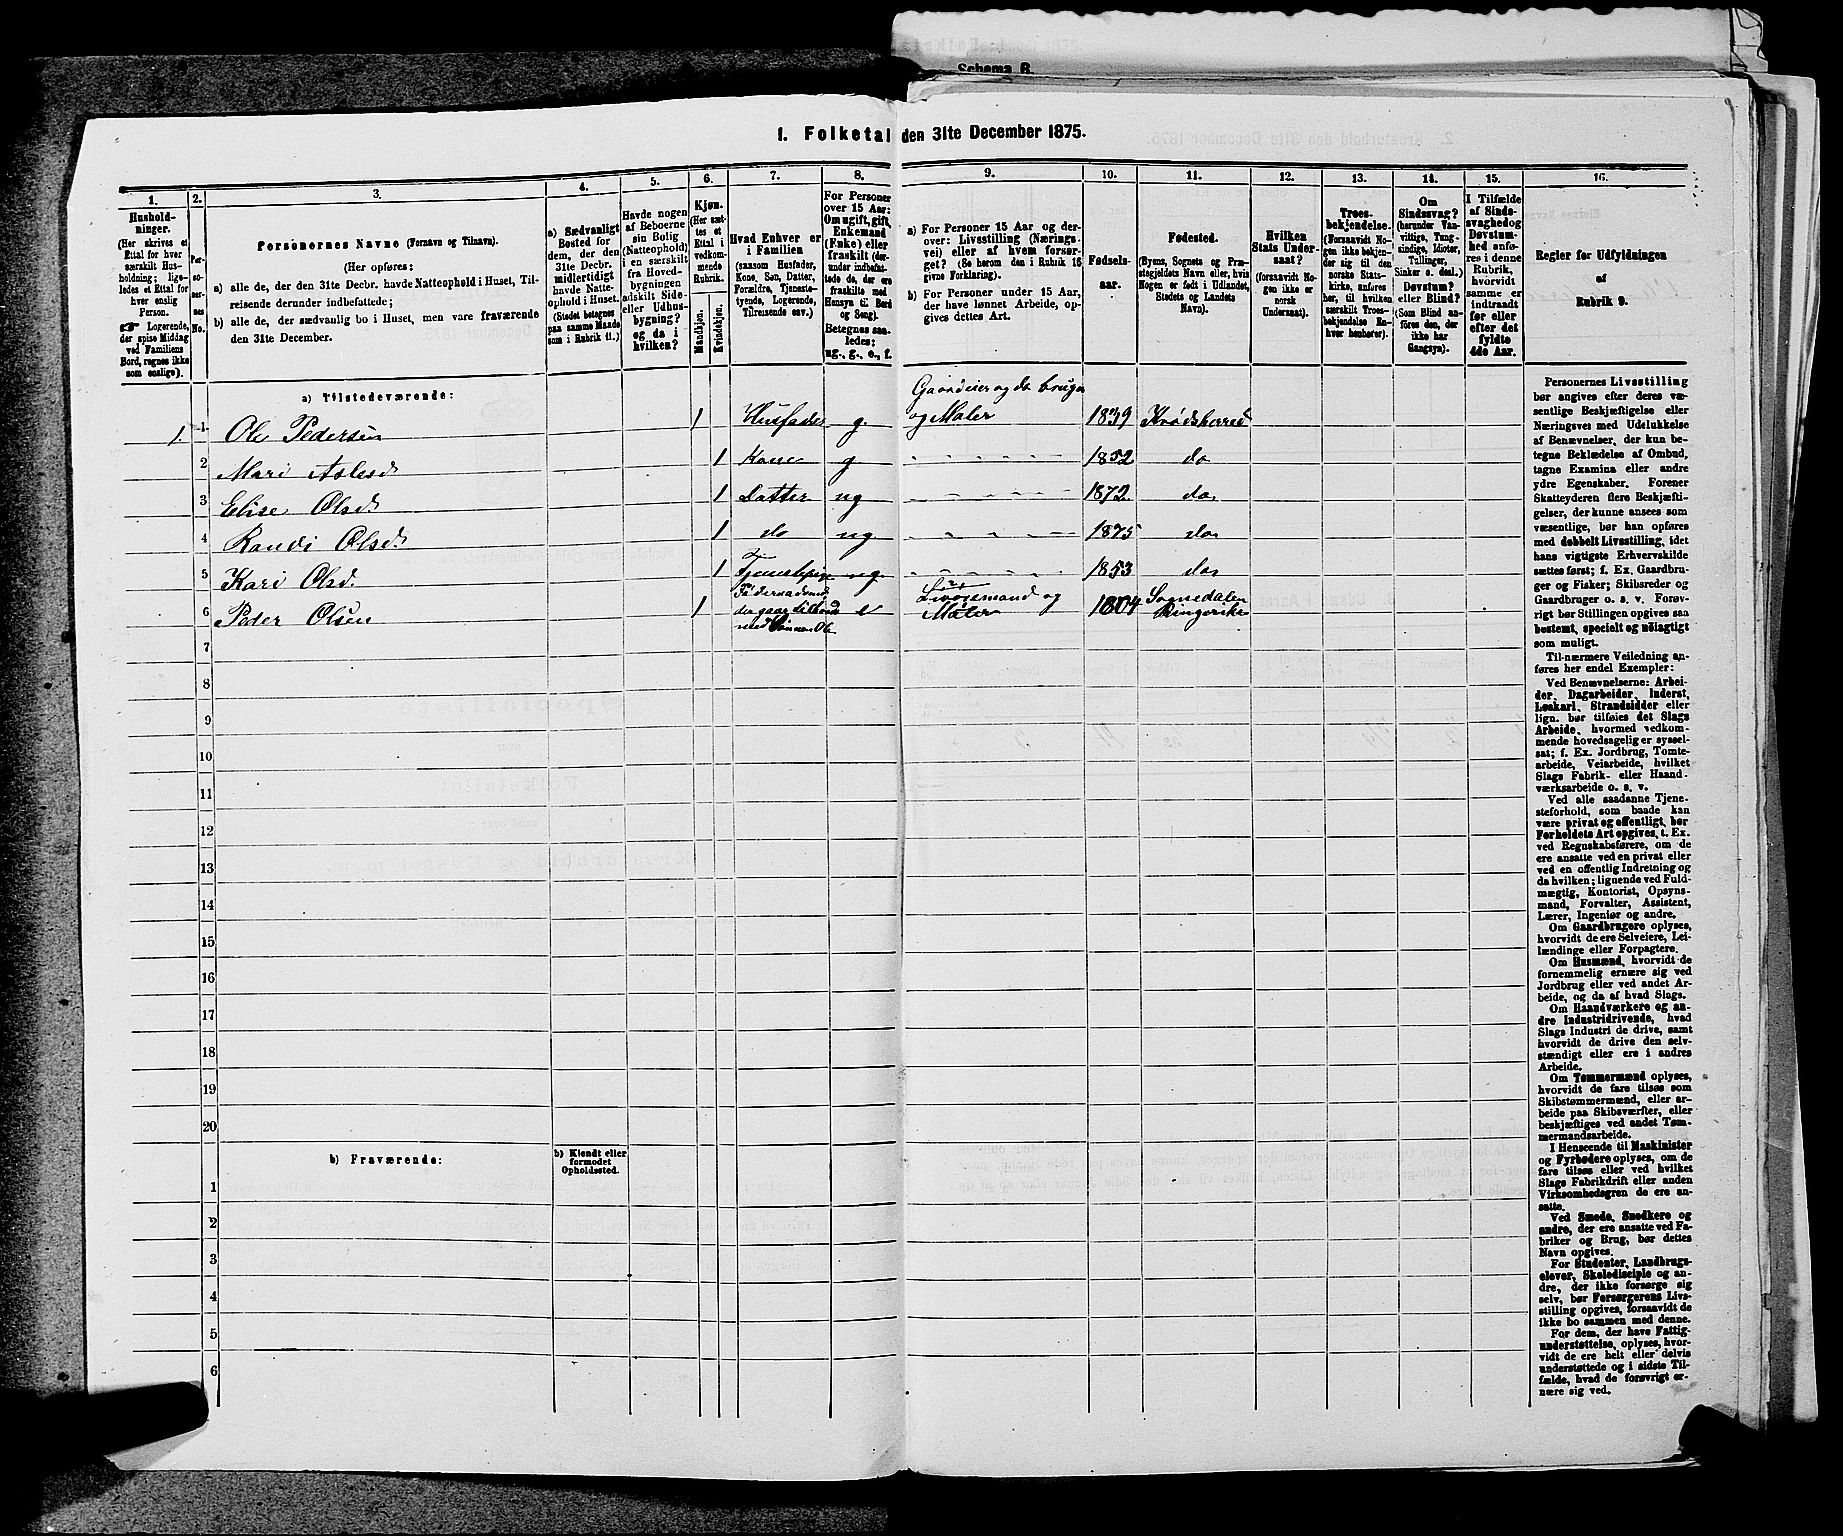 Schema B.
1. Folketal den 31te December 1875.
1.
Hushold-
ninger.
(Her skrives et
Ettal for hver
særskilt Hus-
holdning; lige-
ledes et Ettal
for hver
enslig
Person.
☞ Logerende,
der spise Middag
ved Familiens
Bord, regnes ikke
som enslige).
2.
Per-
so-
ner-
nes
No.
3.
Personernes Navne (Fornavn og Tilnavn).
(Her opføres:
a) alle de, der den 31te Decbr. havde Natteophold i Huset, Til-
reisende derunder indbefattede;
b) alle de, der sædvanlig bo i Huset, men vare fraværende
den 31te December.
4.
a) Sædvanligt
Bosted for
dem, der den
31te Decbr.
midlertidigt
havde Natte-
ophold i Huset.
(Stedet betegnes
paa samme Maade
som i Rubrik 11.)
5.
Havde nogen
af Beboerne
sin Bolig
(Natteophold)
i en særskilt
fra Hoved-
bygningen
adskilt Side-
eller Udhus-
bygning?
og da i
hvilken?
6.
Kjøn.
(Her sæt-
tes et
Ettal i
vedkom-
mende
Rubrik.
Mandkjøn.
Kvindekjøn.
7.
Hvad Enhver er
i Familien
(saasom Husfader,
Kone, Søn, Datter,
Forældre, Tjeneste-
tyende, Logerende,
Tilreisende osv.)
8.
For Personer
over 15 Aar:
Om ugift, gift,
Enkemand
(Enke) eller
fraskilt (der-
under indbefat-
tede de, der ere
fraskilte med
Hensyn til Bord
og Seng).
Betegnes saa-
ledes:
ug., g., e., f.
9.
a) For Personer 15 Aar og der-
over: Livsstilling (Nærings-
vei) eller af hvem forsør-
get? (Se herom den i Rubrik 16
givne Forklaring).
b) For Personer under 15 Aar,
der have lønnet Arbeide, op-
gives dettes Art.
10.
Fødsels-
aar.
11.
Fødested.
(Byens, Sognets og Præ-
stegjeldets Navn eller, hvis
Nogen er født i Udlandet,
Stedets og Landets
Navn).
12.
Hvilken
Stats Under-
saat?
(forsaavidt No-
gen ikke er
norsk
Undersaat).
13.
Troes-
bekjendelse.
(Forsaavidt No-
gen ikke bekjen-
der sig til den
norske Stats-
kirke, anføres
her, til hvilken
særskilt Troes-
bekjendelse En-
hver henhører).
14.
Om
Sindssvag?
(herunder Van-
vittige, Tung-
sindige, Idioter,
Tullinger,
Sinker o. desl.)
Døvstum?
eller Blind?
(Som Blind an-
føres den, der
ikke har
Gangsyn).
15.
I Tilfælde
af Sinds-
svaghed og
Døvstum-
hed anfø-
res i denne
Rubrik,
hvorvidt
samme er
indtraadt
før eller
efter det
fyldte
4de Aar.
16.
Regler for Udfyldningen
af
Rubrik 9.
a) Tilstedeværende:
1. 1 Ole Pedersen 1 Husfader g. Gaardeier og do bruger
og Maler 1839 Krødsherred
2 Mari Aslesd 1 Kone g. - - - - 1852 do
3 Elise Olsd 1 Datter ug - - - - 1872 do
4 Randi Olsd. 1 do ug - - - - 1875 do
5 Kari Olsd. 1 Tjenestepige ug. - - - - 1853 do
6 Peder Olsen 1
der gaar tilbord
med Sønnen Ole
e og
Maler 1804 Sognedalen
Ringerike
7
8
9
10
11
12
13
14
15
16
17
18
19
20
b) Fraværende:
b) Kjendt eller
formodet
Opholdssted.
1
2
3
4
5
6
Personernes Livsstilling
bør angives efter deres væ-
sentlige Beskjæftigelse eller
Næringsvei med Udelukkelse
af Benævnelser, der kun be-
tegne Beklædelse af Ombud,
tagne Examina eller andre
ydre Egenskaber. Forener
Skatteyderen flere Beskjæfti-
gelser, der kunne ansees som
væsentlige, bør han opføres
med dobbelt Livsstilling, idet
hans vigtigste Erhvervskilde
sættes først; f. Ex. Gaardbru-
ger og Fisker; Skibsreder og
Gaardbruger o. s. v. Forøv-
rigt bør Stillingen opgives saa
bestemt, specielt og nøiagtigt
som muligt.
Til nærmere Veiledning an-
føres her endel Exempler:
Ved Benævnelserne: Arbei-
der, Dagarbeider, Inderst,
Løskarl, Strandsidder eller
lign. bør tilføies det Slags
Arbeide, hvormed vedkom-
mende hovedsagelig er syssel-
sat; f. Ex. Jordbrug, Tomte-
arbeide, Veiarbeide, hvilket
Slags Fabrik- eller Haand-
værksarbeide o. s. v.
Ved alle saadanne Tjene-
steforhold, som baade kan
være privat og offentligt, bør
Forholdets Art opgives, t. Ex.
ved Regnskabsførere, om de
ere ansatte ved en privat eller
ved en offentlig Indretning og
da hvilken; lignende ved Fuld-
mægtig, Kontorist, Opsyns-
mand, Forvalter, Assistent,
Lærer, Ingeniør og andre.
Om Gaardbrugere oplyses,
hvorvidt de ere Selveiere, Lei-
lændinge eller Forpagtere.
Om Husmænd, hvorvidt de
fornemmelig ernære sig ved
Jordbrug eller ved andet Ar-
beide, og da af hvad Slags.
Om Haandværkere og an-
dre Industridrivende, hvad
Slags Industri de drive, samt
hvorvidt de drive den selv-
stændigt eller ere i andres
Arbeide.
Om Tømmermænd oplyses,
hvorvidt de fare tilsøs som
Skibstømmermænd, eller ar-
beide paa Skibsværfter, eller
beskjæftiges ved andet Tøm-
mermandsarbeide.
I Henseende til Maskinister
og Fyrbødere oplyses, om de
fare tilsøs eller ved hvilket
Slags Fabrikdrift eller anden
Virksomhedsgren de ere an-
satte.
Ved Smede, Snedkere og
andre, der ere ansatte ved Fa-
briker og Brug, bør dettes
Navn opgives.
For Studenter, Landbrugs-
elever, Skoledisciple og an-
dre, der ikke forsørge sig
selv, bør Forsørgerens Livs-
stilling opgives, forsaavidt de
ikke bo sammen med denne.
For dem, der have Fattig-
understøttelse, oplyses, hvor-
vidt de ere helt eller delvis
understøttede og i sidste Til-
fælde, hvad de forøvrigt er-
nære sig ved.